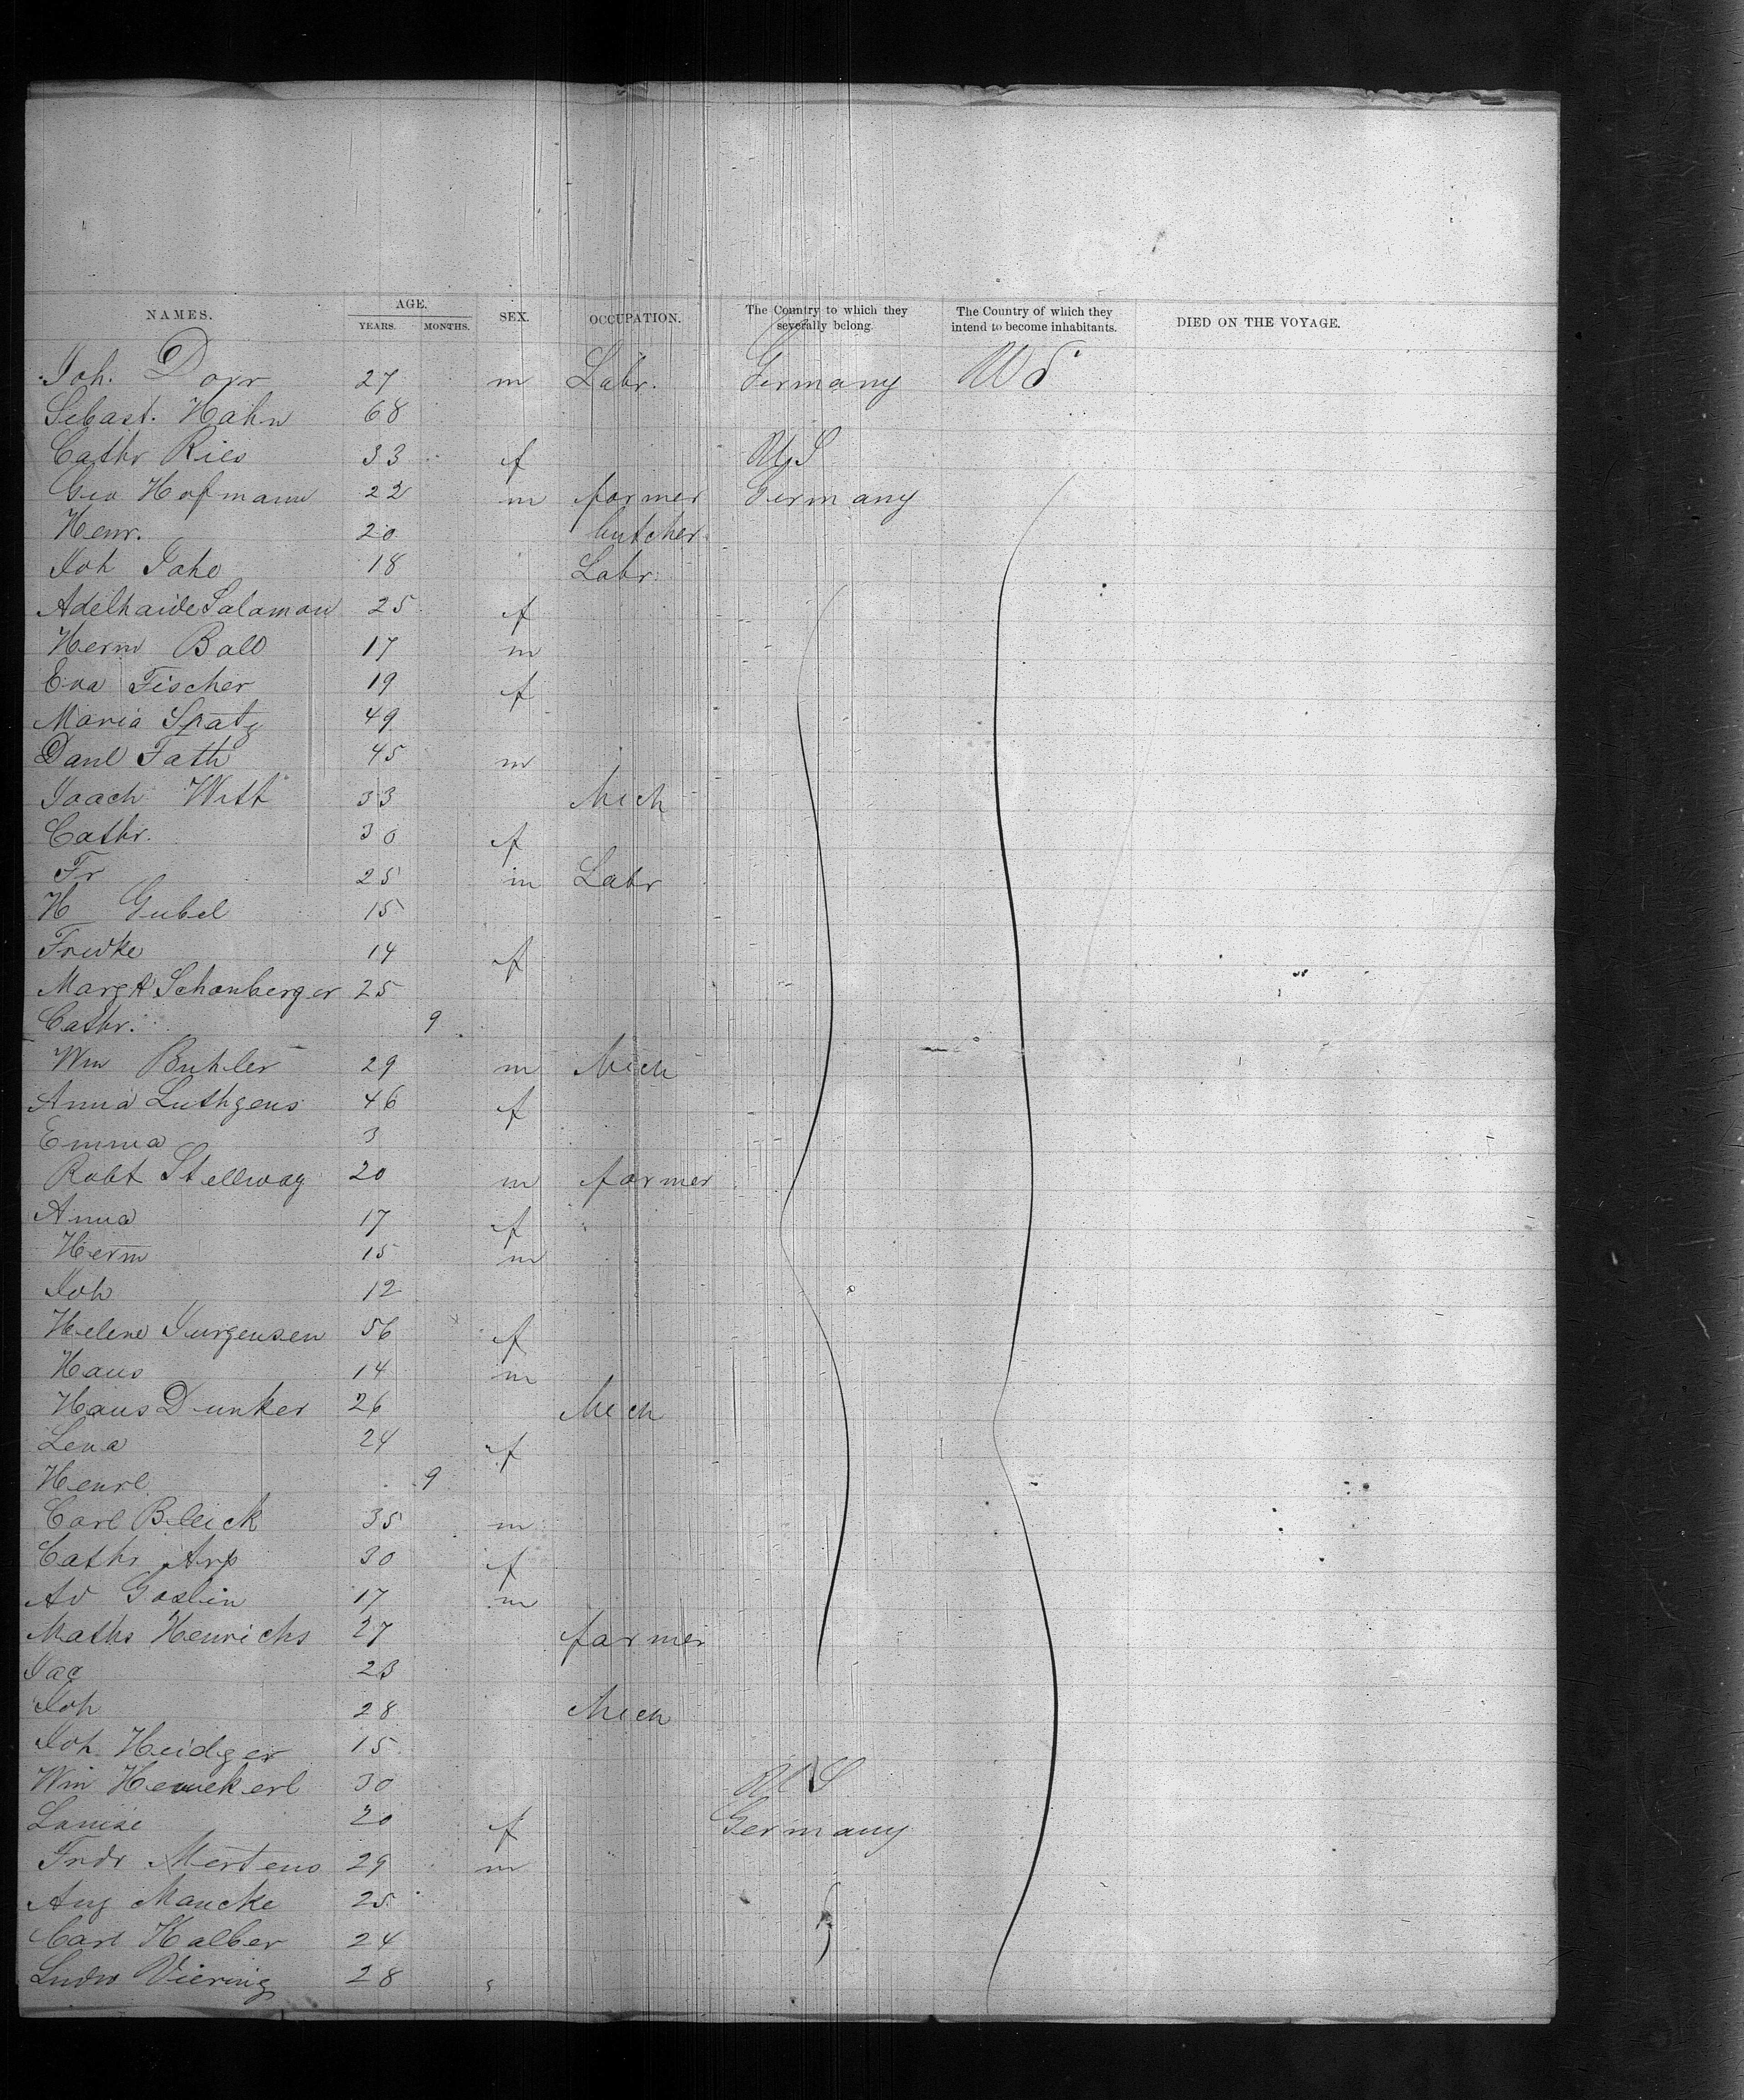 NAMES. AGE. SEX. OCCUPATION. The Country to which they severally belong. The Country of which they intend to become inhabitants. DIED ON THE VOYAGE.
YEARS. MONTHS.
Joh. Dorr 27 m Labr. Germany US
Sebast. Hahn 68
Cathr Ries 33 f US
Geo Hofmann 22 m farmer Germany
Henr. 20 butcher
Joh Jaho 18 Labr.
Adelhaide Salamon 25 f
Herm Ball 17 m
Eva Fischer 19 f
Maria Spatz 49
Danl Fath 45 m
Joach Witt 33 Mech
Cathr. 30 f
Fr 25 m Labr
H Gubel 15
Fredke 14 f
Margt Schonberger 25
Cathr. 9
Wm Buhler 29 m Mech
Anna Luthgens 46 f
Emma 3
Robt Stellwag 20 m farmer
Anna 17 f
Herm 15 m
Joh 12
Helene Jurgensen 56 f
Hans 14 m
Hans Dunker 26 Mech
Lena 24 f
Henrl 9
Carl Bleick 35 m
Cathr Arp 30 f
Ad Goslin 17 m
Maths Henrichs 27 farmer
Jac 23
Joh 28 Mech
Joh Heidger 15
Wm 30 US
Louise 20 f Germany
Fredr Mertens 29 m
Aug Mancke 25
Carl Kalber 24
Ludw Viering 28